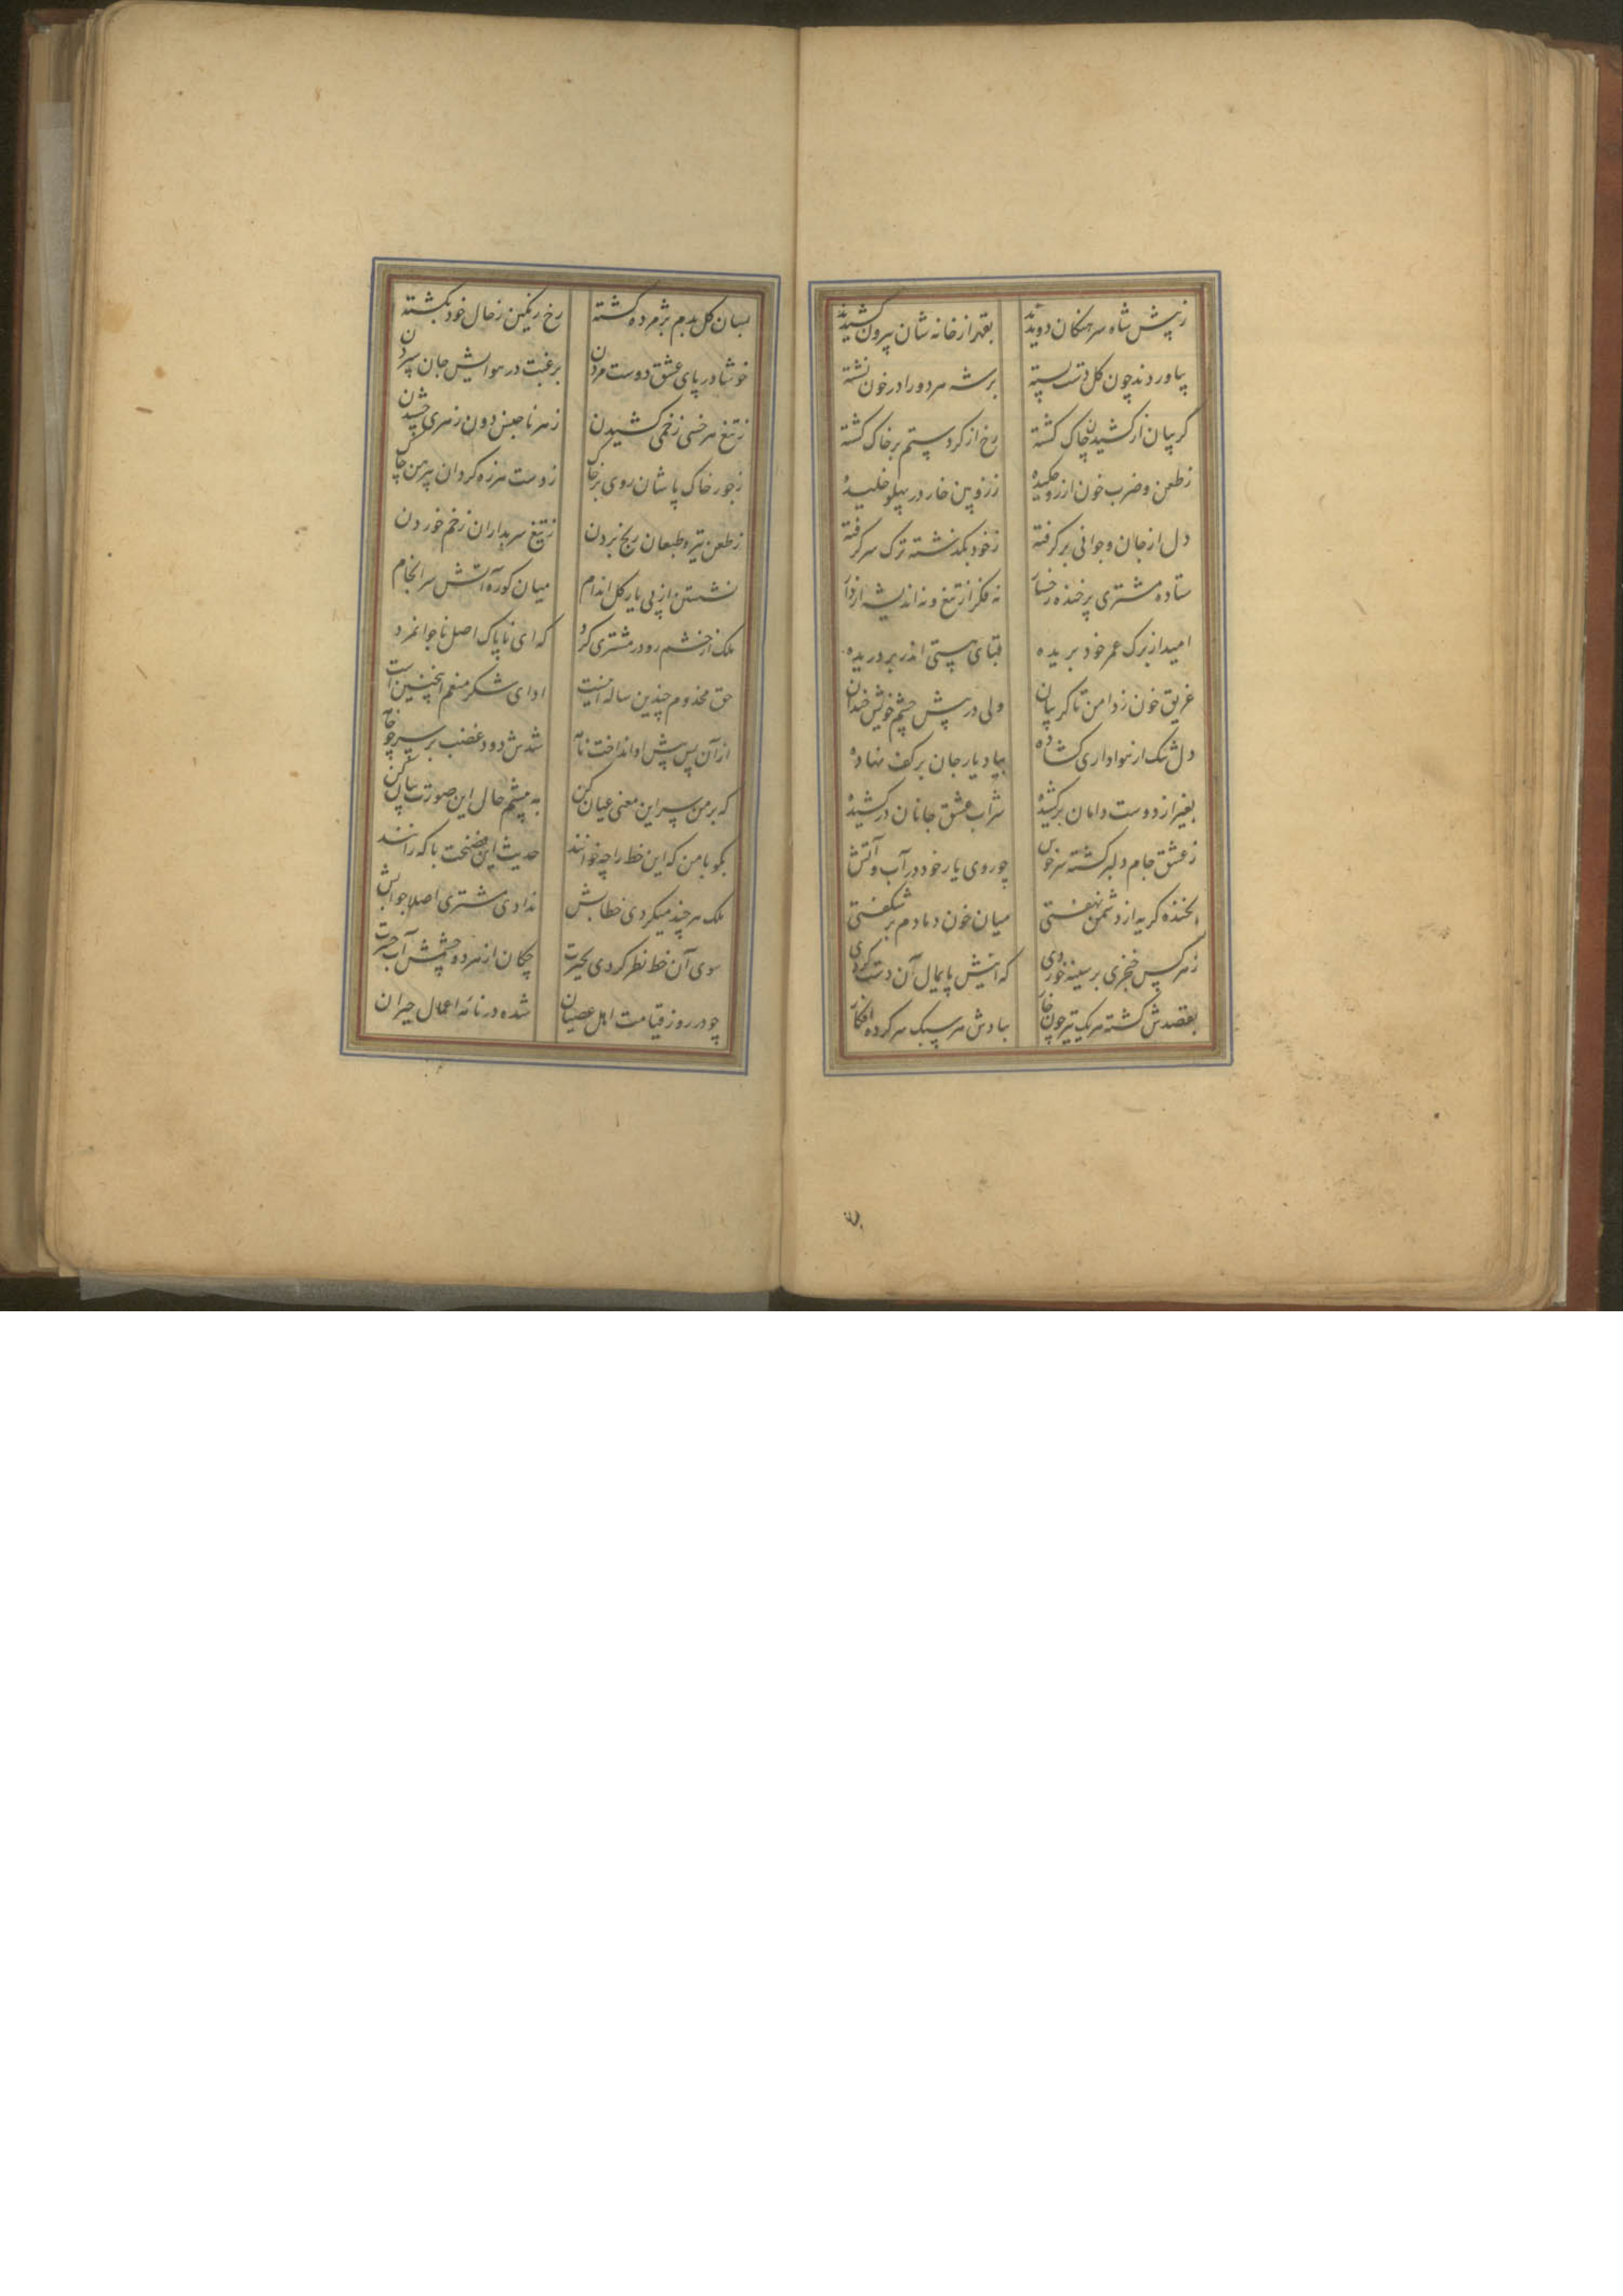 ز پیش شاه سرهنکان دویدند بقهر از خانه شان بیرون کشیدند
بیاوردند چون کل دست بسته بر شه هر دو را در خون نشسته
کریبان از کشیدن چاک کشته رخ از کرد ستم بر خاک کشته
ز طعن و ضرب خون از رو چکیده ز زوبین خار در پهلو خلیده
دل از جان و جوانی بر کرفته ز خود بکذشته ترک سر کرفته
ستاده مشتری پر خنده رخسار نه فکر از تیغ و نه اندیشه از دار
امید از برک عمر خود بریده قبای هستی اندر بر دریده
غریق خون ز دامن تا کریبان ولی در پیش چشم خویش خندان
دل تنک از هواداری کشاده بیاد یار جان بر کف نهاده
بغیر از دوست دامان برکشیده شراب عشق جانان درکشیده
ز عشق جام دلبر کشته سرخوش چو روی یار خود در آب و آتش
بخنده کریه از دشمن نهفتی میان خون دمادم بر شکفتی
ز هر کس خنجری بر سینه خوردی که اینش پایمال آن دست کردی
بقصدش کشته هر یک تیز چون خار بپادش هر سبک سر کرده افکار
بسان کل بدم پژمرده کشته رخ رنکین ز حال خود بکشته
خوشا در پای عشق دوست مردن برغبت در هوایش جان سپردن
ز تیغ هر خسی زخمی کشیدن ز هر ناجنس دون زهری چشیدن
ز جور خاک پاشان روی بر خاک ز دست هرزه کردان پیرهن چاک
ز طعن تیره طبعان رنج بردن ز تیغ سربداران زخم خوردن
نشستن از پی یار کل اندام میان کوره آتش سرانجام
ملک از خشم رو در مشتری کرد که ای ناپاک اصل ناجوانمرد
حق مخدوم چندین ساله اینست ادای شکر منعم اینچنین است
از آن پس پیش او انداخت نامه شدش دود غضب بر سر چو خامه
که بر من سر این معنی عیان کن به پیشم حال این صورت بیان کن
بکو با من که این خط را چه خوانند حدیث این فضیحت با که رانند
ملک هر چند میکردی خطابش ندادی مشتری اصلا جوابش
سوی آن خط نظر کردی بحیرت چکان از هر دو چشمش آب حسرت
چو در روز قیامت اهل عصیان شده در نامه اعمال حیران